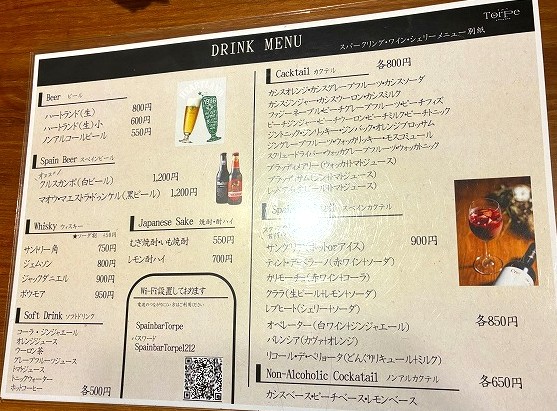 Torpe
DRINK MENU
スパークリング・ワイン・シェリーメニュー別紙
Beer ビール
ハートランド(生) 800円
ハートランド(生)小 600円
ノンアルコールビール 550円
Spain Beer スペインビール
クルスカンポ(白ビール) 1,200円
マオウ・マエストラ・ドゥンケル(黒ビール) 1,200円
Whisky ウィスキー
サントリー角 750円
ジェムソン 800円
ジャックダニエル 900円
ボウモア 950円
Japanese Sake 焼酎・酎ハイ
むぎ焼酎・いも焼酎 550円
レモン酎ハイ 700円
Soft Drink ソフトドリンク
コーラ・ジンジャエール
オレンジジュース
ウーロン茶
グレープフルーツジュース
トマトジュース
トニックウォーター
ホットコーヒー 各500円
Wi-Fi設置しております
SpainbarTorpe
パスワード
SpainbarTorpe1212
Cacktail カクテル 各800円
カシスオレンジ・カシスグレープフルーツ・カシスソーダ
カシスジンジャー・カシスウーロン・カシスミルク
ファジーネーブル・ピーチグレープフルーツ・ピーチフィズ
ピーチジンジャー・ピーチウーロン・ピーチミルク・ピーチトニック
ジントニック・ジンリッキー・ジンバック・オレンジブロッサム
ジングレープフルーツ・ウォッカリッキー・モスコミュール
スクリュードライバー・ウォッカグレープフルーツ・ウォッカトニック
ブラッディメアリー(ウォッカトマトジュース)
トマトジュース)
トマトジュース)
スペインカクテル
サングリア orアイス) 900円
ティント・デ・ベラーノ(赤ワイン+ソーダ)
カリモーチョ(赤ワイン+コーラ)
クララ(生ビール+レモン+ソーダ)
レブヒート(シェリー+ソーダ)
オペレーター(白ワイン+ジンジャエール)
バレンシア(カヴァ+オレンジ)
リコール・デ・ベジョータ(どんぐりリキュール+ミルク)
各850円
Non-Alcoholic Cockatail ノンアルカクテル 各650円
カシスベース・ピーチベース・レモンベース